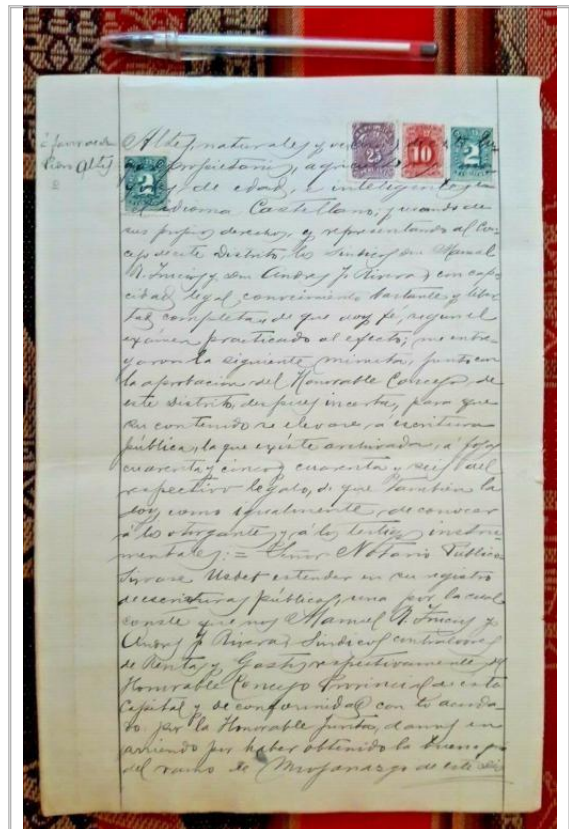 Altez, naturales y vecinos
propietario, agric
de edad, e inteligente en
el idioma Castellano; y usando de
sus propios derechos, y representando al Con-
cejo de este Distrito, los Síndicos don Manuel
R. y don Andres J. Rivera; con capa-
cidad legal conocimiento bastante y liber-
tad completa, de que doy fe, segun el
exámen practicado al efecto; me entre-
garon la siguiente minuta, junto con
la aprobacion del Honorable Concejo de
este Distrito, despues incerta, para que
su contenido se elevara, a escritura
pública, la que existe archivada, á fojas
cuarenta y cinco y cuarenta y seis del
respectivo legajo, de que tambien la
doy como igualmente, de conocer
á los otorgantes y á los testigos instru-
mentales: = Señor Notario Público
Sirvase Usdet estender en su registro
de escrituras públicas, una por la cual
conste que nos Manuel R. y
Andres J. Rivera, Síndicos contralores
de Rentas y Gastos respectivamente del
Honorable Concejo Provincial de esta
Capital y de conformidad con lo acorda-
do por la Honorable Junta, damos en
arriendo por haber obtenido la buena pro
del ramo de Mojonazgo de este Dis
25
10
2
2